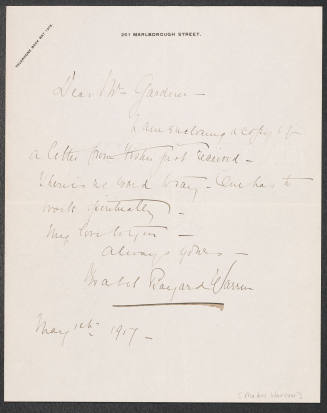 261 MARLBOROUGH STREET.
TELEPHONE BACK BAY
Dear Mrs Gardner –
I am enclosing a copy of
a letter from just received –
There is no word wrong – One has to
work
My love to you –
Always yours –
Mabel Bayard Warren
May 1917 –
(Mabel Warren)